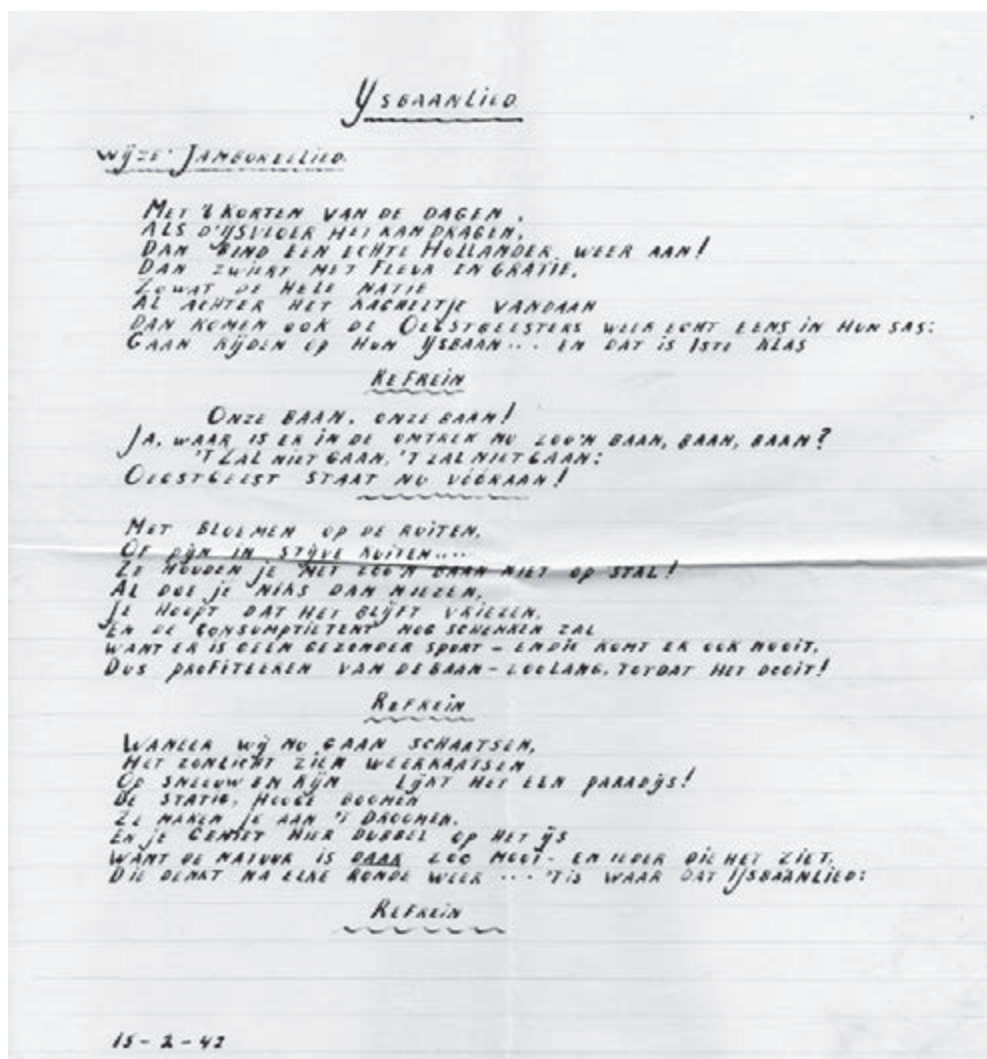 IJSBAANLIED
WIJZE: JAMBOREELIED.
MET 'T KORTEN VAN DE DAGEN,
ALS D'IJSVLOER HET KAN DRAGEN,
DAN BIND EEN ECHTE HOLLANDER WEER AAN!
DAN ZWIERT MET FLEUR EN GRATIE,
ZOWAT DE HELE NATIE
AL ACHTER HET KACHELTJE VANDAAN
DAN KOMEN OOK DE OEGSTGEESTERS WEER ECHT EENS IN HUN SAS:
GAAN RIJDEN OP HUN IJSBAAN.... EN DAT IS 1STE KLAS
REFREIN
ONZE BAAN, ONZE BAAN!
JA, WAAR IS ER IN DE OMTREK NU ZOO'N BAAN, BAAN, BAAN?
'T ZAL NIET GAAN, 'T ZAL NIET GAAN:
OEGSTGEEST STAAT NU VÓÓRAAN!
MET BLOEMEN OP DE RUITEN,
OF PIJN IN STIJVE KUITEN....
ZE HOUDEN JE MET ZOO'N BAAN NIET OP STAL!
AL DOE JE NIKS DAN NIEZEN,
JE HOOPT DAT HET BLIJFT VRIEZEN,
EN DE CONSUMPTIETENT NOG SCHENKEN ZAL
WANT ER IS GEEN GEZONDER SPORT - EN DIE KOMT ER OOK NOOIT,
DUS PROFITEEREN VAN DE BAAN - ZOOLANG, TOTDAT HET DOOIT!
REFREIN
WANEER WIJ NU GAAN SCHAATSEN,
HET ZONLICHT ZIEN WEERKAATSEN
OP SNEEUW EN RIJM LIJKT HET EEN PARADIJS!
DE STATIG, HOOGE BOOMEN
ZE MAKEN JE AAN 'T DROOMEN,
EN JE GENIET HIER DUBBEL OP HET IJS
WANT DE NATUUR IS DAAR ZOO MOOI - EN IEDER DIE HET ZIET,
DIE DENKT NA ELKE RONDE WEER .... 'TIS WAAR DAT IJSBAANLIED:
REFREIN
15-2-42